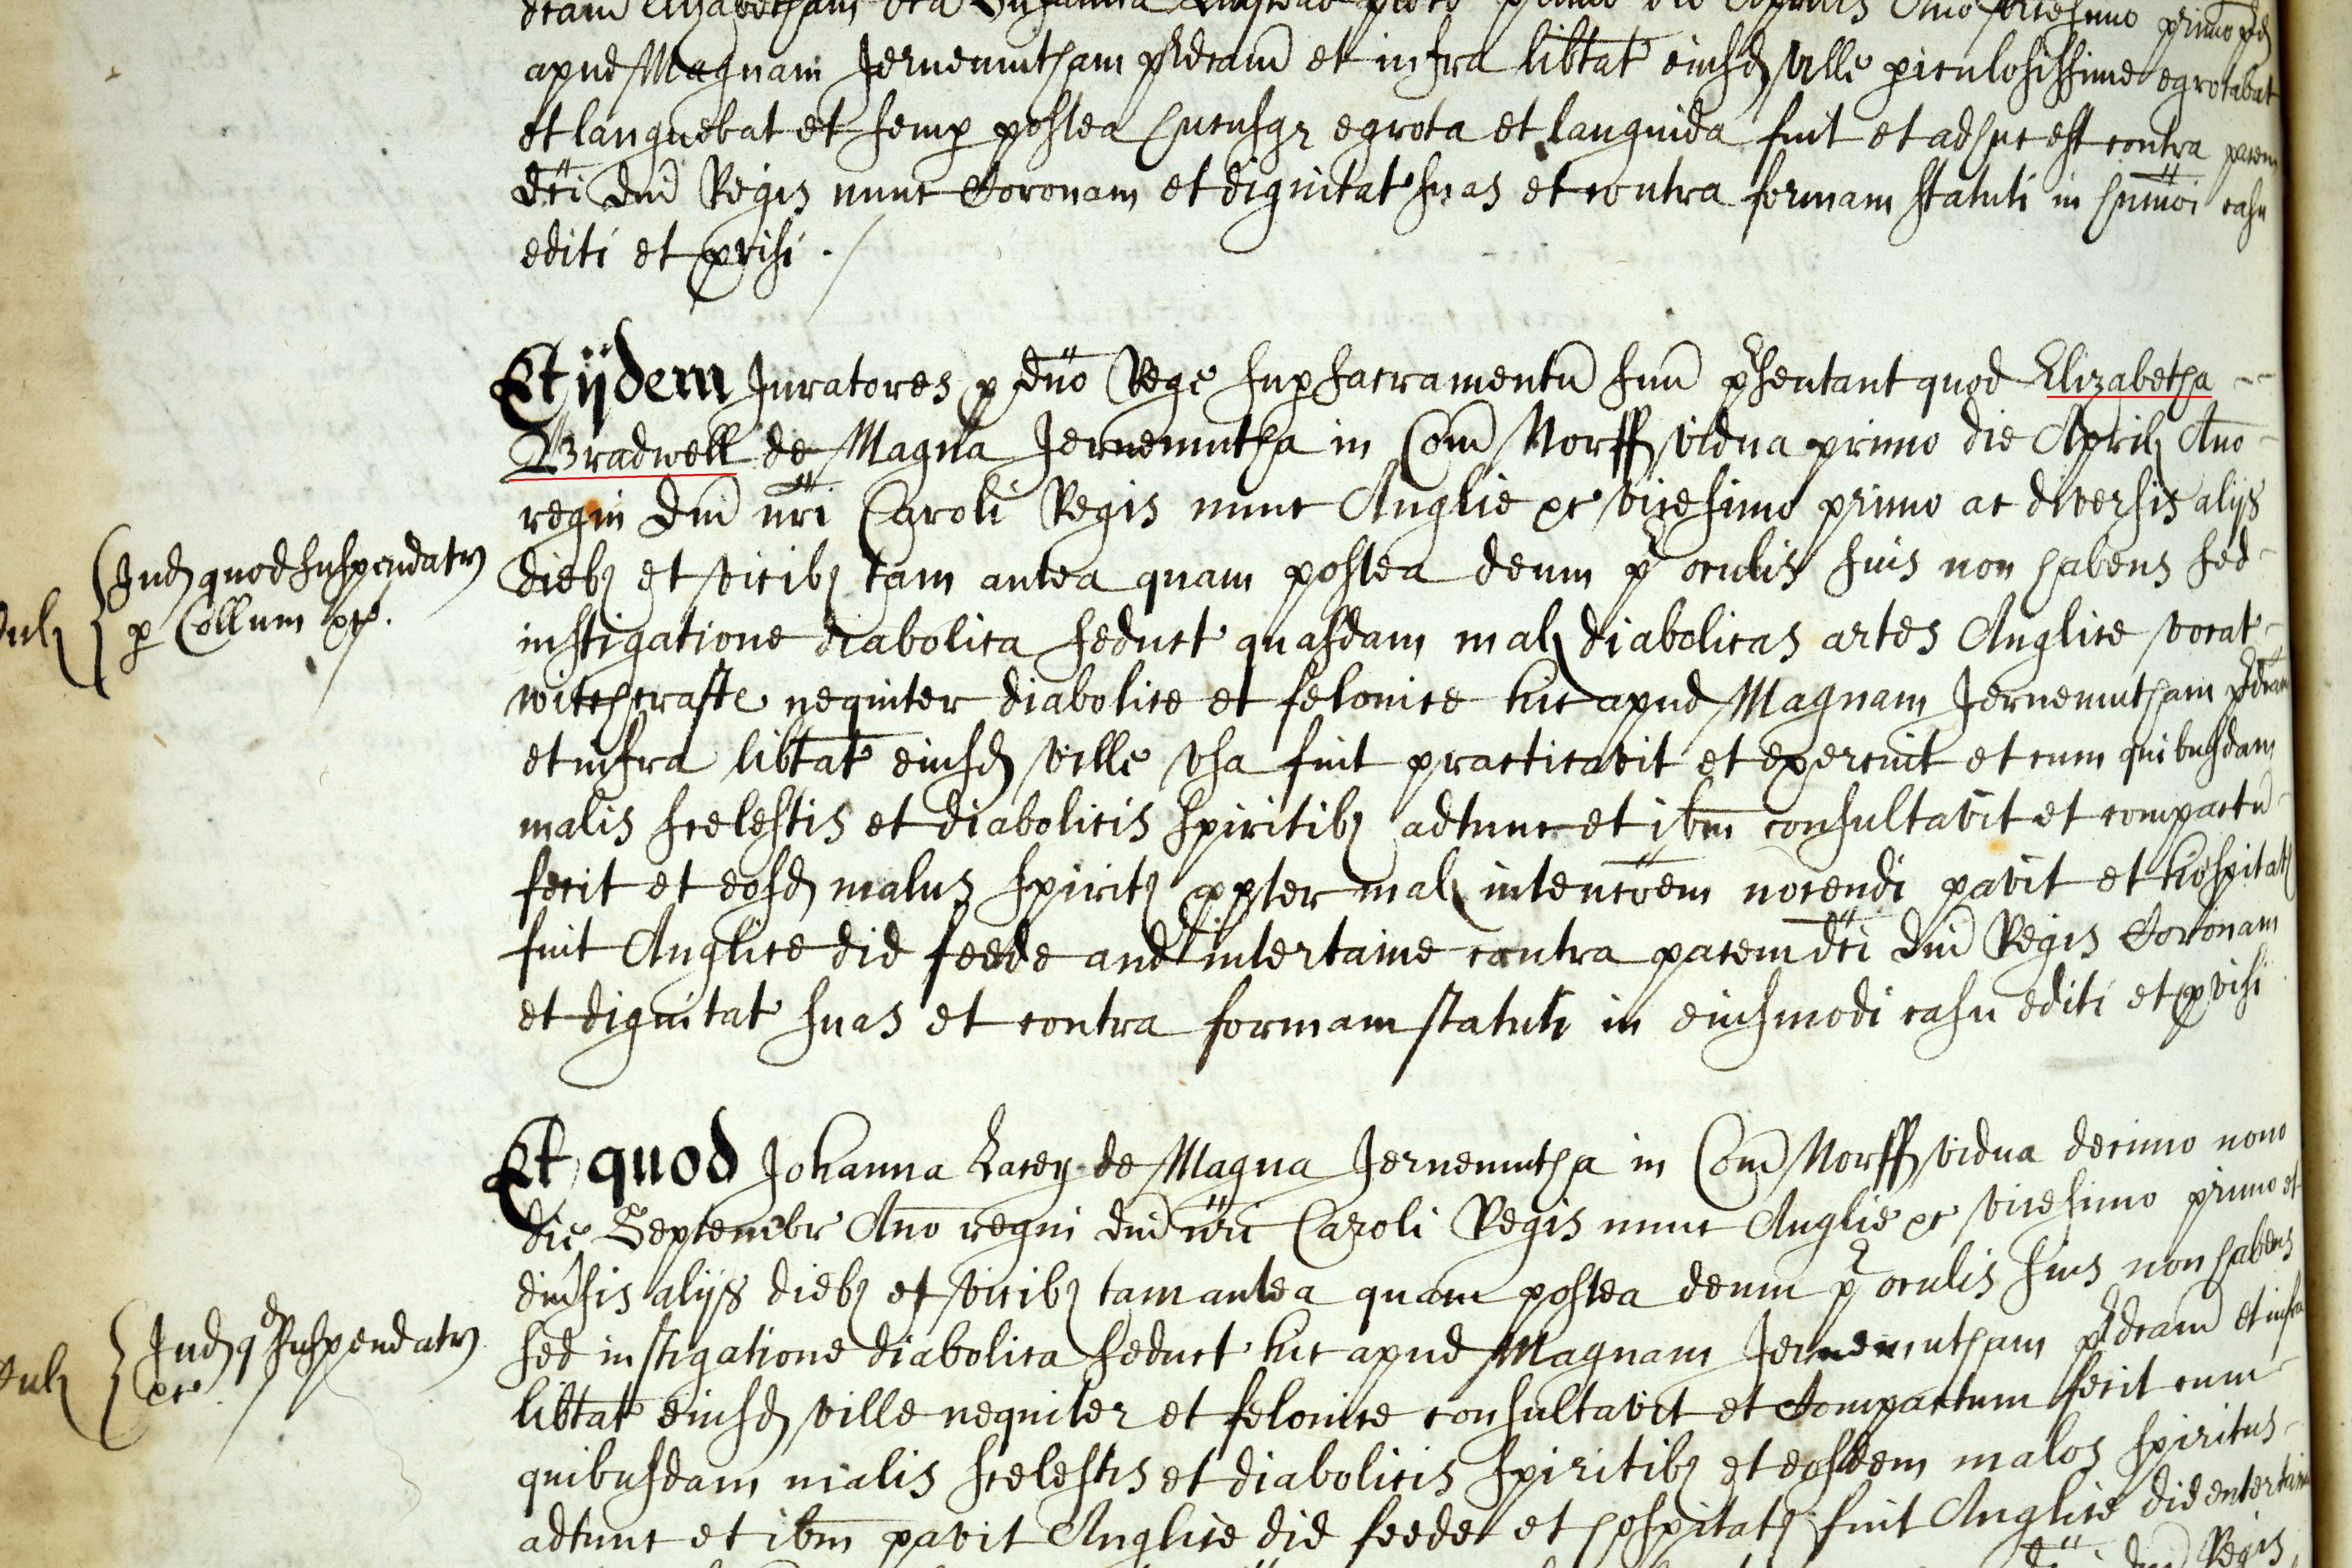 dcam Elizabetham
apud Magnam Jernemutham p̱dcam̄ et infra lib̄tat' eiusd ville p̱iculosissime egrotabat
et languebat et semp̱ postea hucusqz egrota et languida fuit et adhuc est contra pacem
dc̄i Dn̄i Regis nunc Coronam et dignitat' suas et contra formam statuti in hm̄oi casu
editi et p̱visi ./
Et ijdem Juratores p̱ dn̄o Rege sup̱ sacramentū suū p̱sentant quod Elizabetha --
Bradwell de Magna Jernemutha in Com̄ Norff vidua primo die Aprilz An̄o -
regni Dn̄i nr̄i Caroli Regis nunc Anglie &c vicesimo primo ac diversis alijs
diebz et vicibz tam antea quam postea deum p̱ oculis suis non habens sed -
Jud quod suspendatr
p̱ Collum &c.
instigatione diabolica seduct' quasdam malz diabolicas artes Anglice vocat' -
witchcrafte nequiter diabolice et felonice hic apud Magnam Jernemutham p̱dcam̄
et infra lib̄tat' eiusd ville vsa fuit practicavit et exercuit et cum quibusdam
malis scelestis et diabolicis spiritibz adtunc et ib̄m consultavit et compactū -
fecit et eosd malus spiritz p̱pter malz intenc̄oem nocendi pavit et hospitatz
fuit Anglice did feede and intertaine contra pacem dc̄i Dn̄i Regis Coronam
et dignitat' suas et contra formam statuti in eiusmodi casu editi et p̱visi
Et quod Johanna Lacey de Magna Jernemutha in Com̄ Norff vidua decimo nono
die Septembr' An̄o regni Dn̄i nr̄i Caroli Regis nunc Anglie &c vicesimo primo et
div̄sis alijs diebz et vicibz tam antea quam postea deum p̱ oculis suis non habens
Jud qd suspendatr
&c
sed instigatione diabolica seduct' hic apud Magnam Jernemutham p̱dcam̄ et infra
lib̄tat' eiusd ville nequiter et felonice consultavit et Compactum fecit cum -
quibusdam malis scelestis et diabolicis spiritibz et eosdem malos spiritus -
adtunc et ib̄m pavit Anglice did feede et hospitatz fuit Anglice did entertaine
Regis